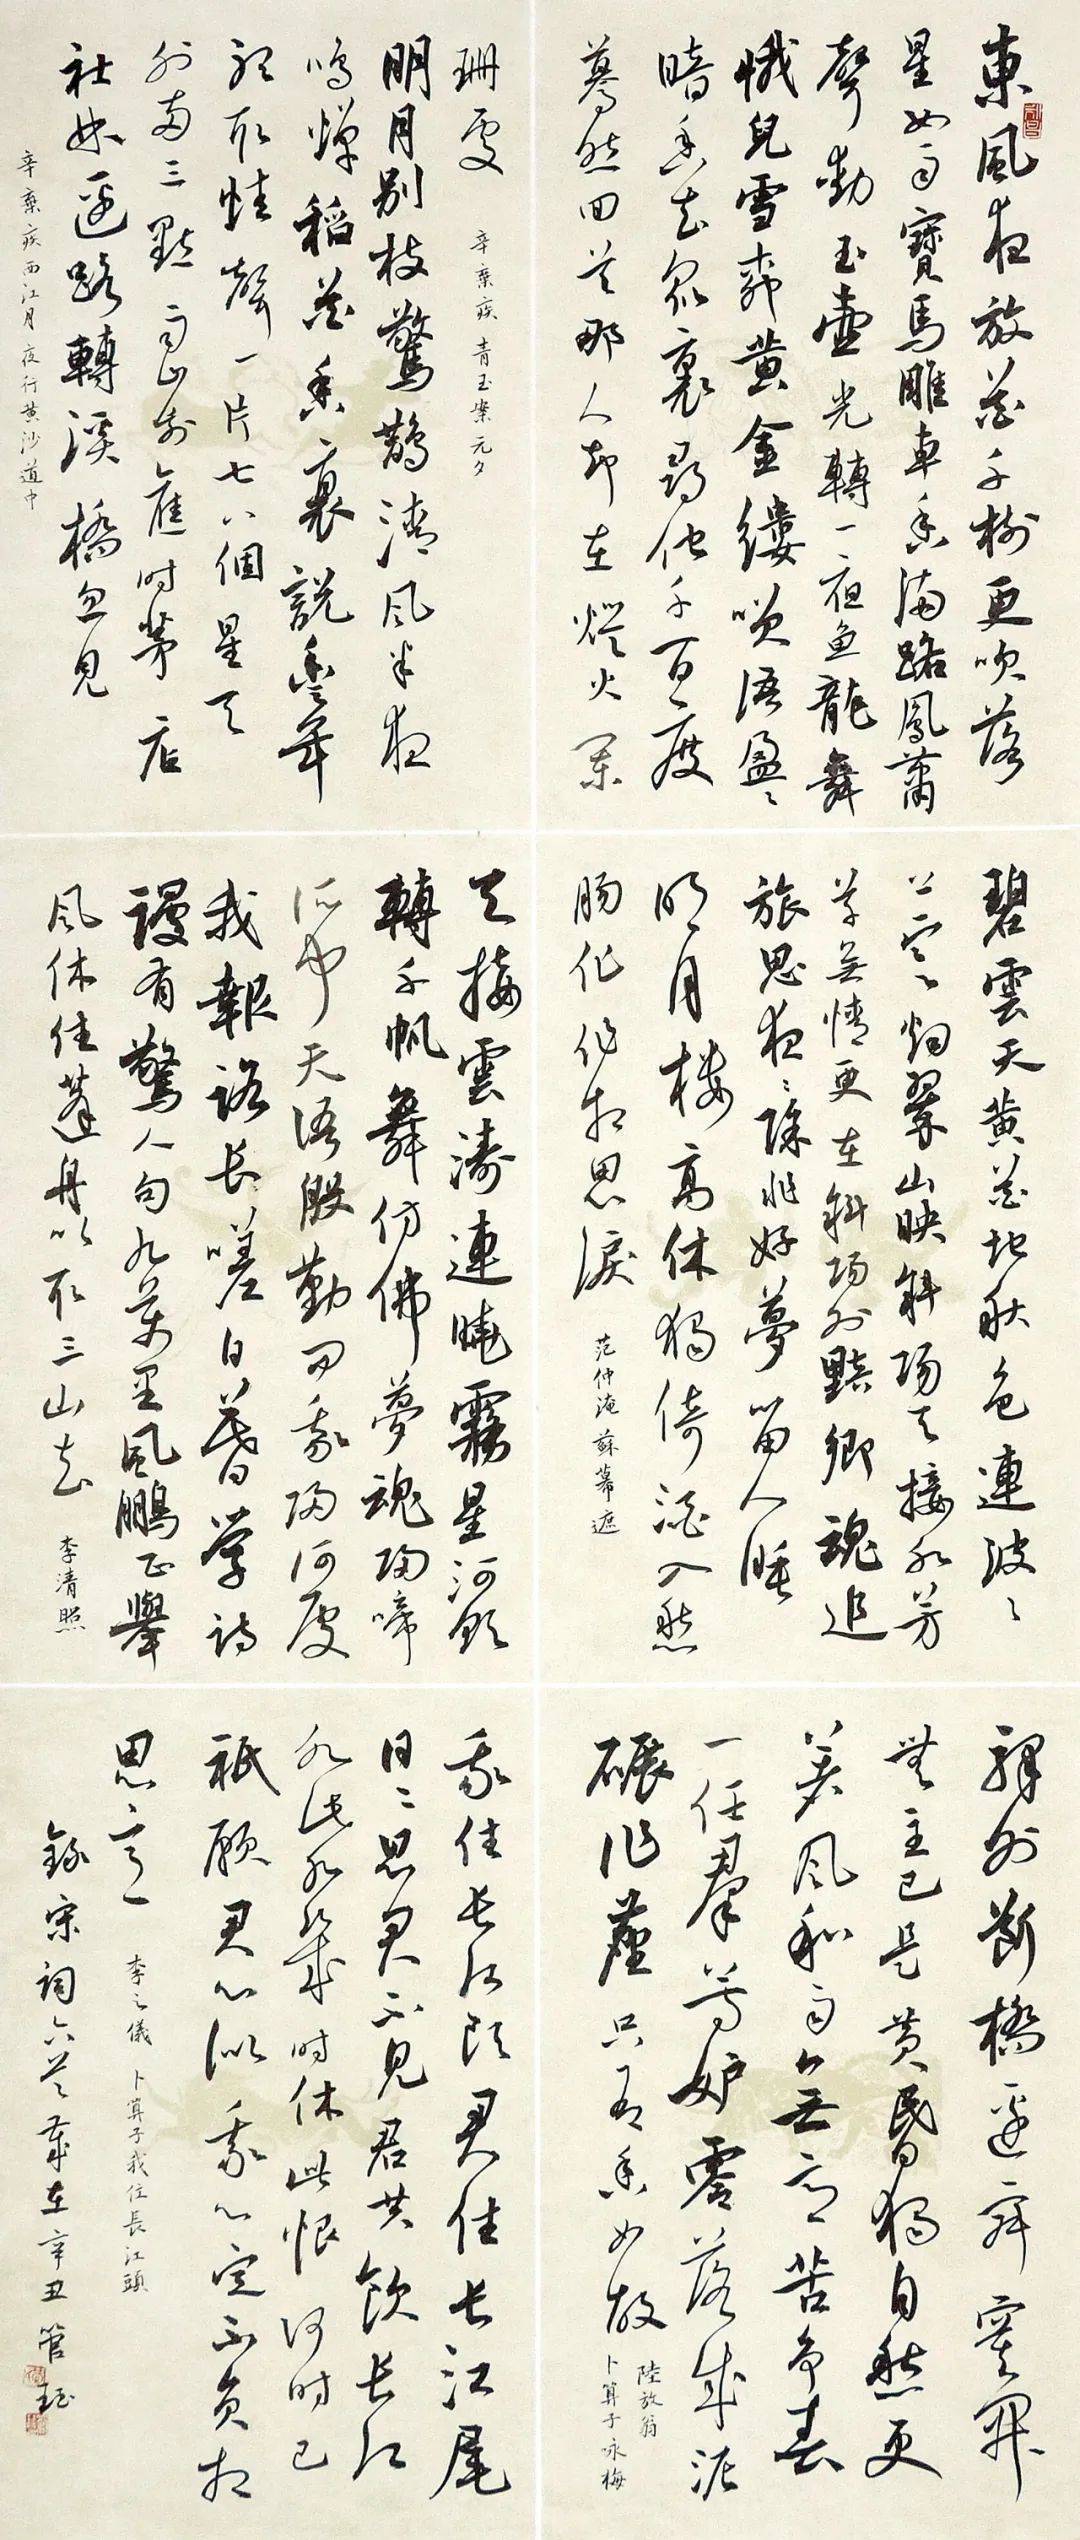 東風夜放花千樹更吹落
星如雨寶馬雕車香滿路鳳蕭
聲動玉壺光轉一夜魚龍舞
蛾兒雪柳黄金縷笑語盈〻
暗香去衆裏尋他千百度
驀然回首那人却在燈火闌
珊處 辛棄疾 青玉案元夕
明月别枝驚鵲清風半夜
鳴蟬稻花香裏說豐年
聽取蛙聲一片七八個星天
外兩三點雨山前舊時茅店
社林邊路轉溪橋忽見
辛棄疾西江月夜行黄沙道中
碧雲天黄花地秋色連波〻
上寒烟翠山映斜陽天接水芳
草無情更在斜陽外黯鄉魂追
旅思夜〻除非好夢留人睡
明月樓高休獨倚酒入愁
腸化作相思淚 范仲淹 蘇幕遮
天接雲濤連曉霧星河欲
轉千帆舞仿佛夢魂歸帝
所聞天語殷勤問我歸何處
我報路長嗟日暮學詩
謾有驚人句九萬里風鵬正舉
風休住蓬舟吹取三山去 李清照
驛外斷橋邊寂寞開
無主已是黄昏獨自愁更
著風和雨無意苦爭春
一任羣芳妒零落成泥
碾作塵只有香如故 陸放翁
卜算子咏梅
我住長江頭君住長江尾
日〻思君不見君共飲長江
水此水幾時休此恨何時已
祇願君心似我心定不負相
思意 李之儀 卜算子我住長江頭
錄宋詞六首歲在辛丑管珏